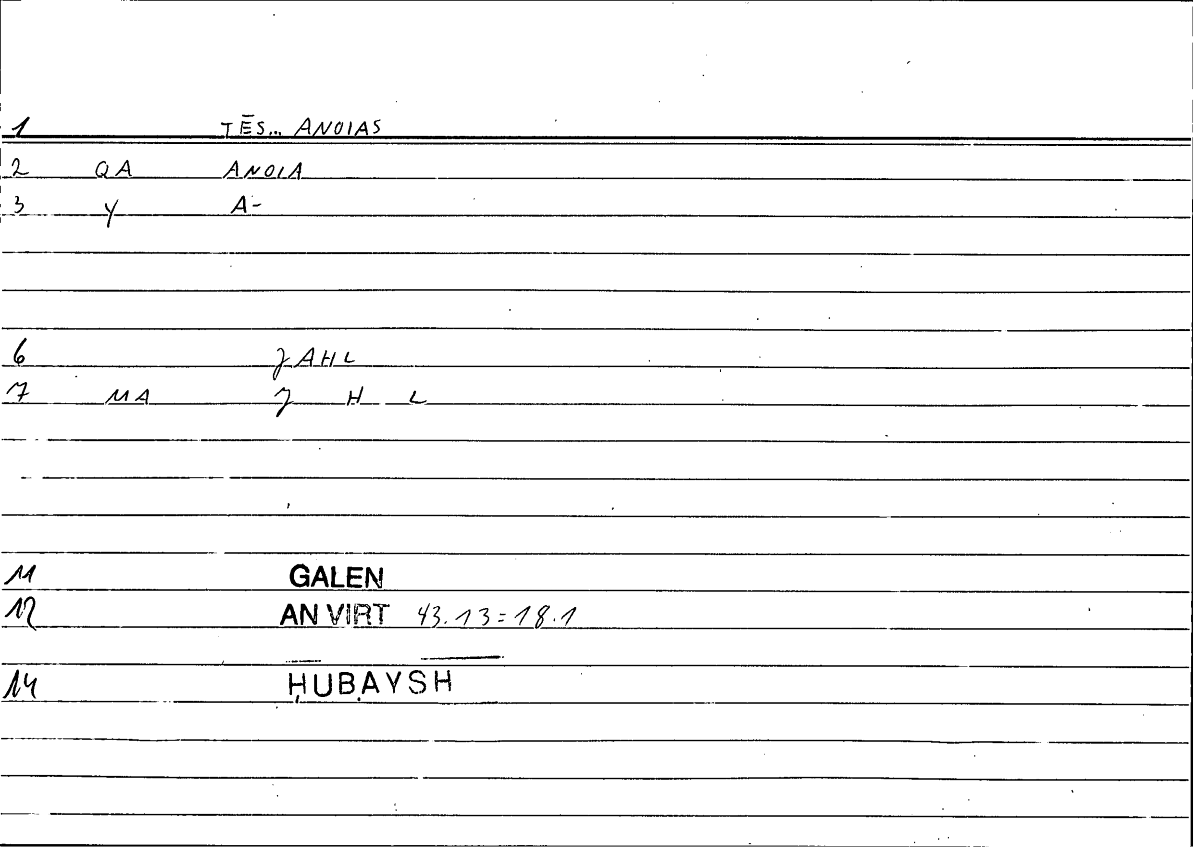 1 TĒS... ANOIAS
2 QA ANOIA
3 Y A-
6 JAHL
7 MA J H L
11 GALEN
12 AN VIRT 43.13=18.1
14 ḤUBAYSH